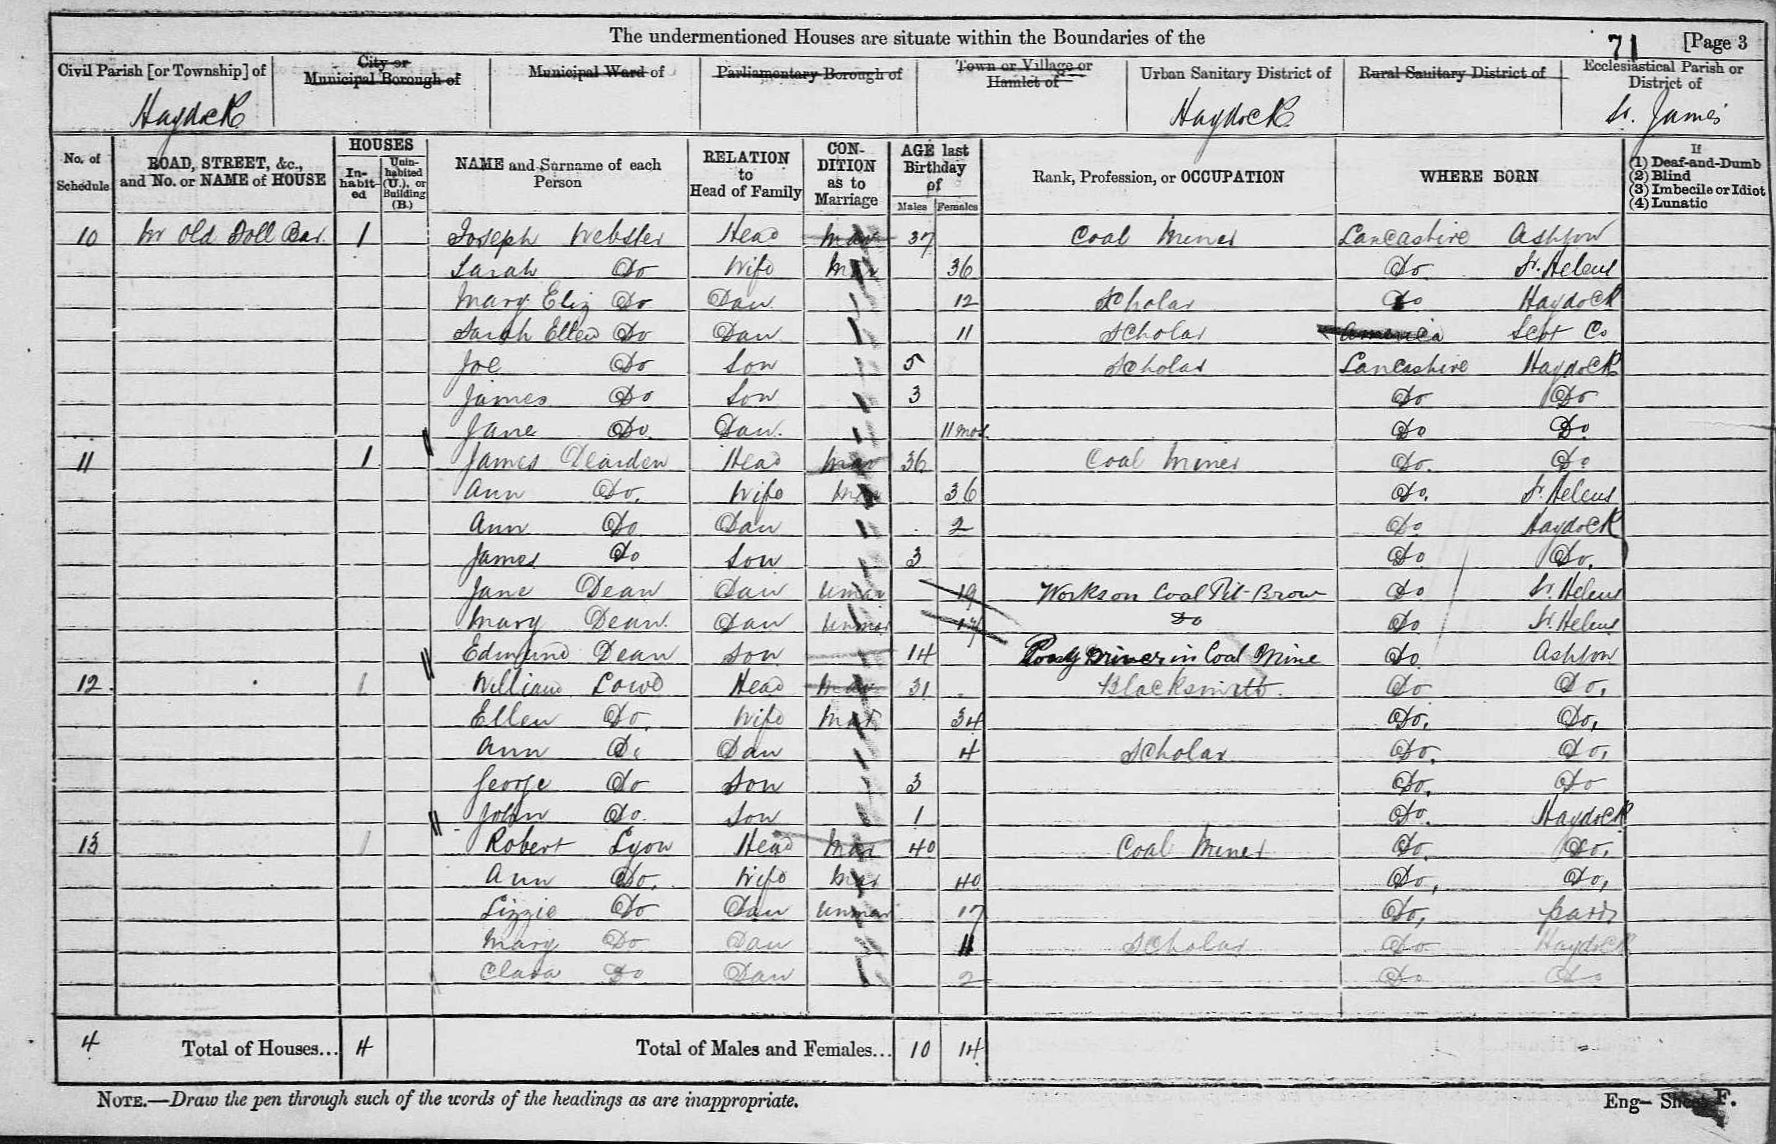 The undermentioned Houses are situate within the Boundaries of the
71 [Page 3
Civil Parish [or Township] of City or Municipal Borough of Municipal Ward of Parliamentary Borough of Town or Village or Hamlet of Urban Sanitary District of Rural Sanitary District of Ecclesiastical Parish or District of
Haydock Haydock St. James
No. of Schedule ROAD, STREET, &c., and No. or NAME of HOUSE HOUSES In-habit-ed Unin-habited (U.), or Building (B.) NAME and Surname of each Person RELATION to Head of Family CON-DITION as to Marriage AGE last Birthday of Males Females Rank, Profession, or OCCUPATION WHERE BORN If (1) Deaf-and-Dumb (2) Blind (3) Imbecile or Idiot (4) Lunatic
10 Nr Old Toll Bar. 1 Joseph Webster Head Mar 37 Coal Miner Lancashire Ashton
Sarah Do Wife Mar 36 Do St. Helens
Mary Eliz Do Daw 12 Scholar Do Haydock
Sarah Ellen Do Daw 11 Scholar America
Joe Do Son 5 Scholar Lancashire Haydock
James Do Son 3 Do Do
Jane Do. Daw. 11 mos. Do Do.
11 1 James Dearden Head Mar 36 Coal Miner Do. Do
Ann Do. Wife Mar 36 Do. St. Helens
Ann Do Daw 2 Do Haydock
James Do Son 3 Do Do.
Jane Dean Daw Unmar 19 Works on Coal Pit Brow Do St. Helens
Mary Dean. Daw Unmar 17 Do Do St. Helens
Edmund Dean Son 14 Driver in Coal Mine Do Ashton
12 1 William Lowe Head Mar 31 Blacksmith Do Do.
Ellen Do. Wife Mar 34 Do. Do,
Ann Do Daw 4 Scholar Do. Do.
George Do Son 3 Do. Do
John Do. Son 1 Do. Haydock
13 1 Robert Lyon Head Mar 40 Coal Miner Do. Do.
Ann Do. Wife Mar 40 Do, Do,
Lizzie Do Daw Unmar 17 Do,
Mary Do Daw 11 Scholar Do Haydock
Clara Do Daw 2 Do Do
4 Total of Houses... 4 Total of Males and Females... 10 14
NOTE.—Draw the pen through such of the words of the headings as are inappropriate.
Eng— Sheet F.